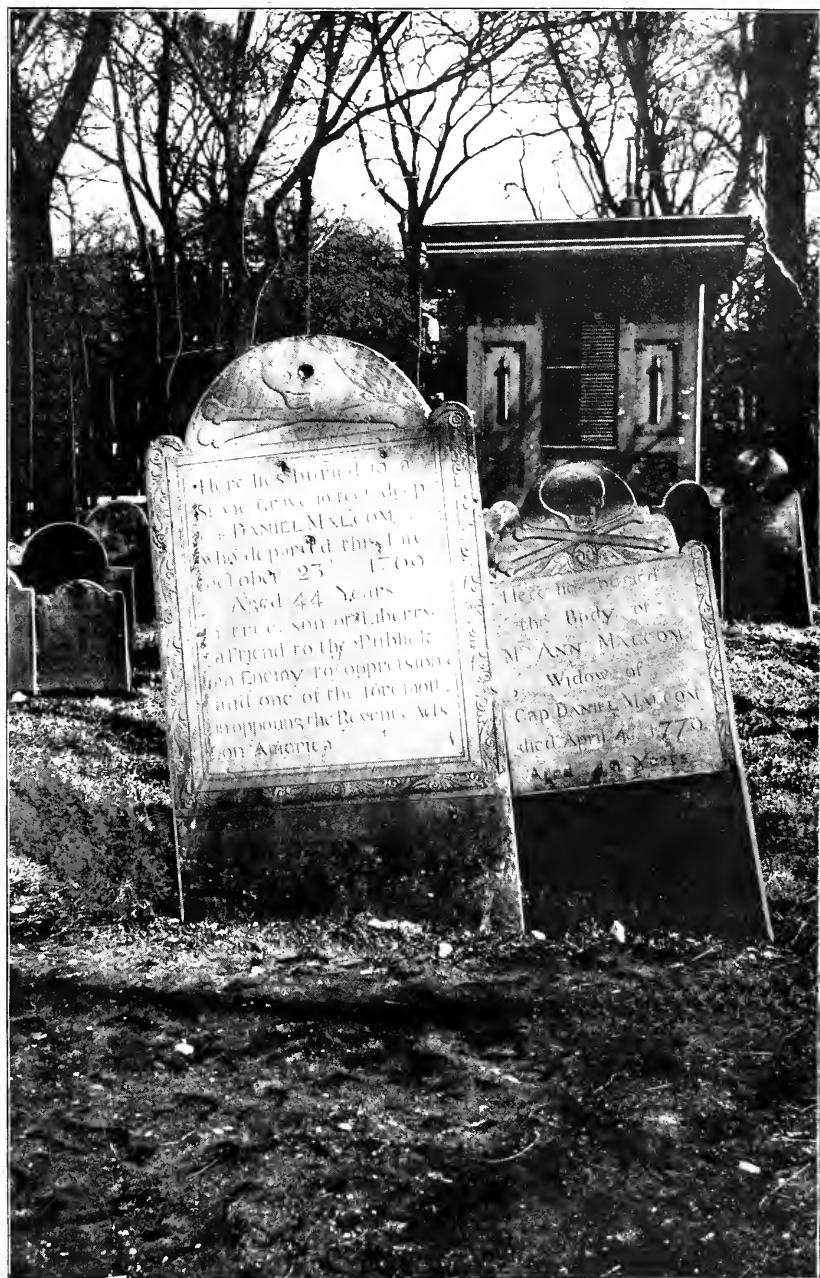 Here lies buried in a
Stone Grave 10 feet deep
DANIEL MALCOM
who departed this Life
october 23d 1769
Aged 44 Years
a true son of Liberty
a Friend to the Publick
an Enemy to oppression
and one of the foremost
in opposing the Revenue Acts
on America
Here lies buried
the Body of
Mrs ANN MALCOM
Widow of
Capt DANIEL MALCOM
died April 4th 1770
Aged 40 Years